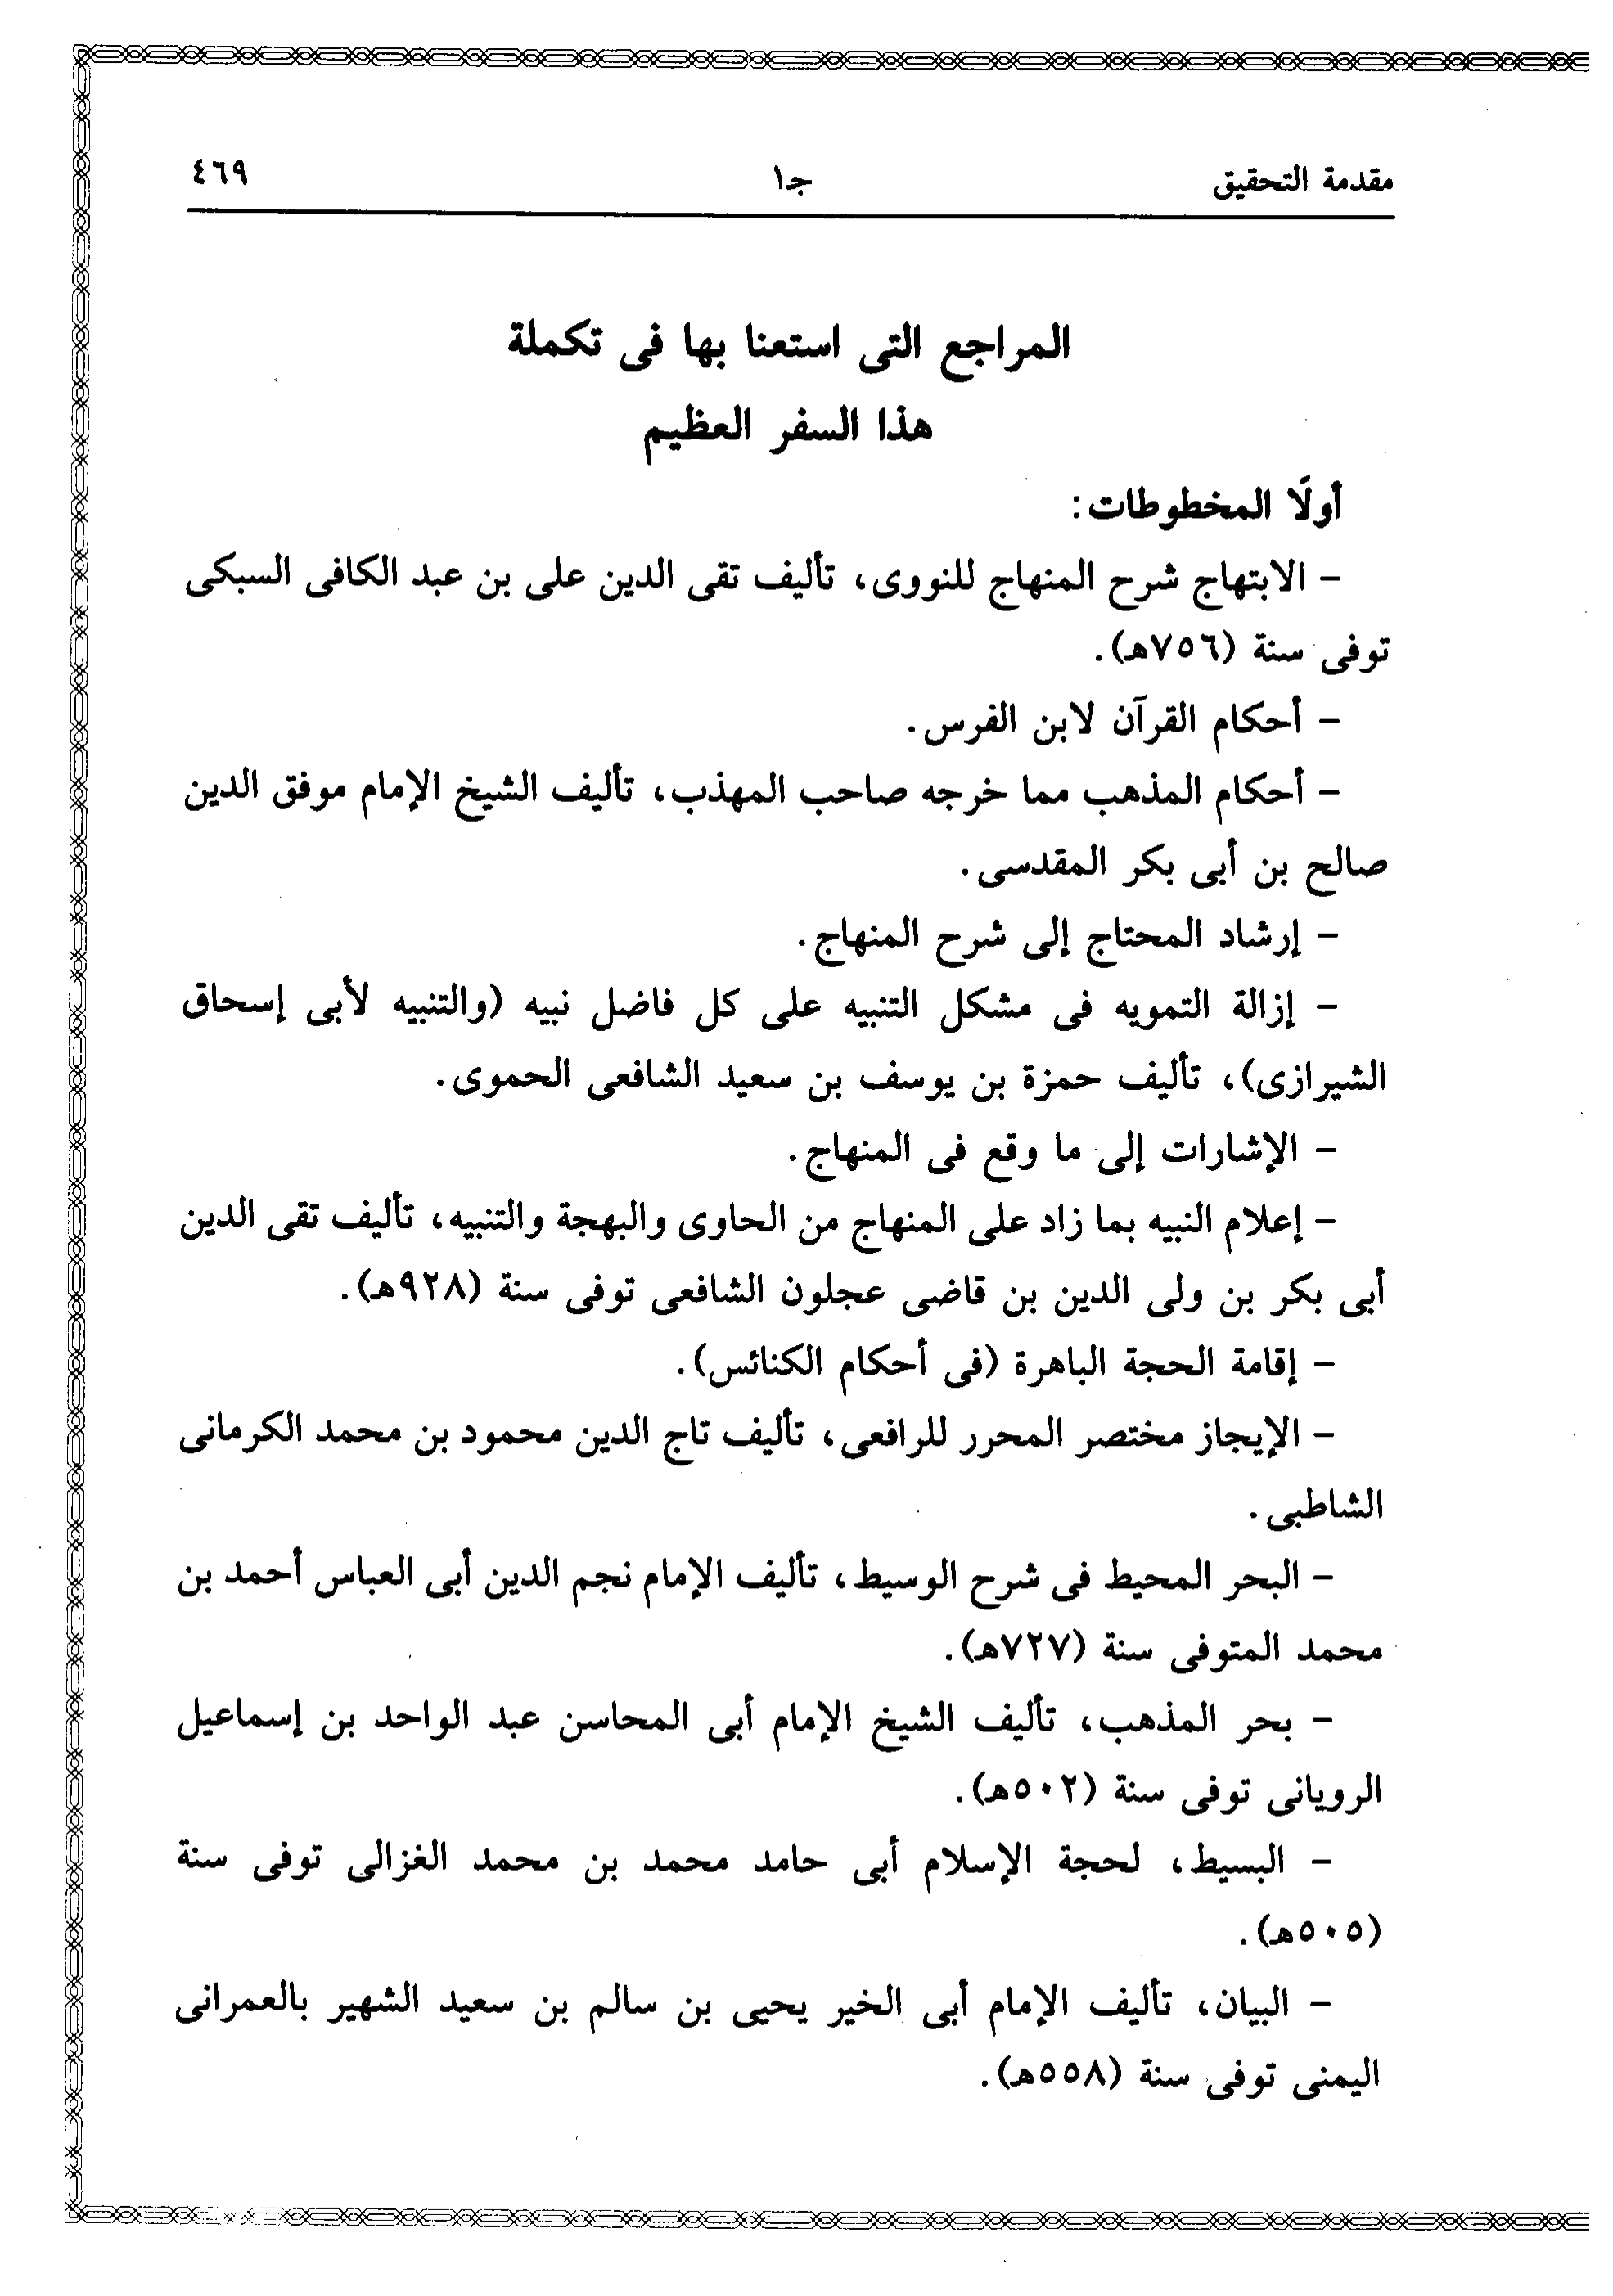 مقدمة التحقيق جـ١ ٤٦٩
المراجع التى استعنا بها فى تكملة
هذا السفر العظيم
أولًا المخطوطات:
- الابتهاج شرح المنهاج للنووى، تأليف تقى الدين على بن عبد الكافى السبكى
توفى سنة (٧٥٦هـ).
- أحكام القرآن لابن الفرس.
- أحكام المذهب مما خرجه صاحب المهذب، تأليف الشيخ الإمام موفق الدين
صالح بن أبى بكر المقدسى.
- إرشاد المحتاج إلى شرح المنهاج.
- إزالة التمويه فى مشكل التنبيه على كل فاضل نبيه (والتنبيه لأبى إسحاق
الشيرازى)، تأليف حمزة بن يوسف بن سعيد الشافعى الحموى.
- الإشارات إلى ما وقع فى المنهاج.
- إعلام النبيه بما زاد على المنهاج من الحاوى والبهجة والتنبيه، تأليف تقى الدين
أبى بكر بن ولى الدين بن قاضى عجلون الشافعى توفى سنة (٩٢٨هـ).
- إقامة الحجة الباهرة (فى أحكام الكنائس).
- الإيجاز مختصر المحرر للرافعى، تأليف تاج الدين محمود بن محمد الكرمانى
الشاطبى.
- البحر المحيط فى شرح الوسيط، تأليف الإمام نجم الدين أبى العباس أحمد بن
محمد المتوفى سنة (٧٢٧هـ).
- بحر المذهب، تأليف الشيخ الإمام أبى المحاسن عبد الواحد بن إسماعيل
الرويانى توفى سنة (٥٠٢هـ).
- البسيط، لحجة الإسلام أبى حامد محمد بن محمد الغزالى توفى سنة
(٥٠٥هـ).
- البيان، تأليف الإمام أبى الخير يحيى بن سالم بن سعيد الشهير بالعمرانى
اليمنى توفى سنة (٥٥٨هـ).